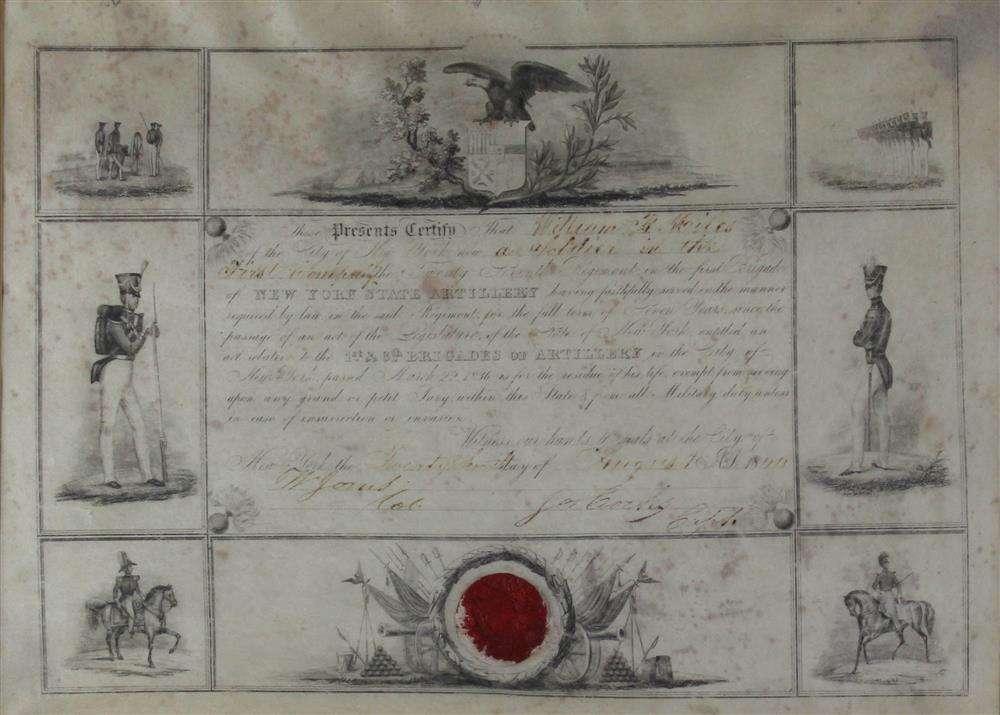 These Presents Certify That William
of the City of New York now a Soldier in the
First Company the Twenty Seventh Regiment in the first Brigade
of NEW YORK STATE ARTILLERY having faithfully served in the manner
required by law in the said Regiment, for the full term of Seven Years, since the
passage of an act of the Legislature, of the State of New York, entitled an
act relative to the 1st & 6th BRIGADES OF ARTILLERY in the City of
New York, passed March 29 1836 is for the residue of his life, exempt from serving
upon any grand or petit Jury, within this State & from all Military duty, unless
in case of insurrection or invasion
Witness our hands & seals at the City of
New York the Twenty day of August
W Jones
Col. Capt.